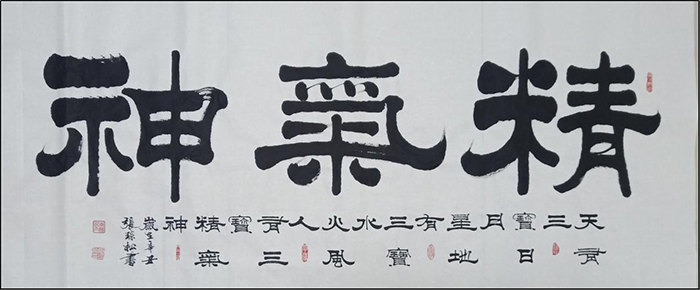 精氣神
天有三寶日月星地有三寶水火風人有三寶精氣神
歲在辛丑
張 松書